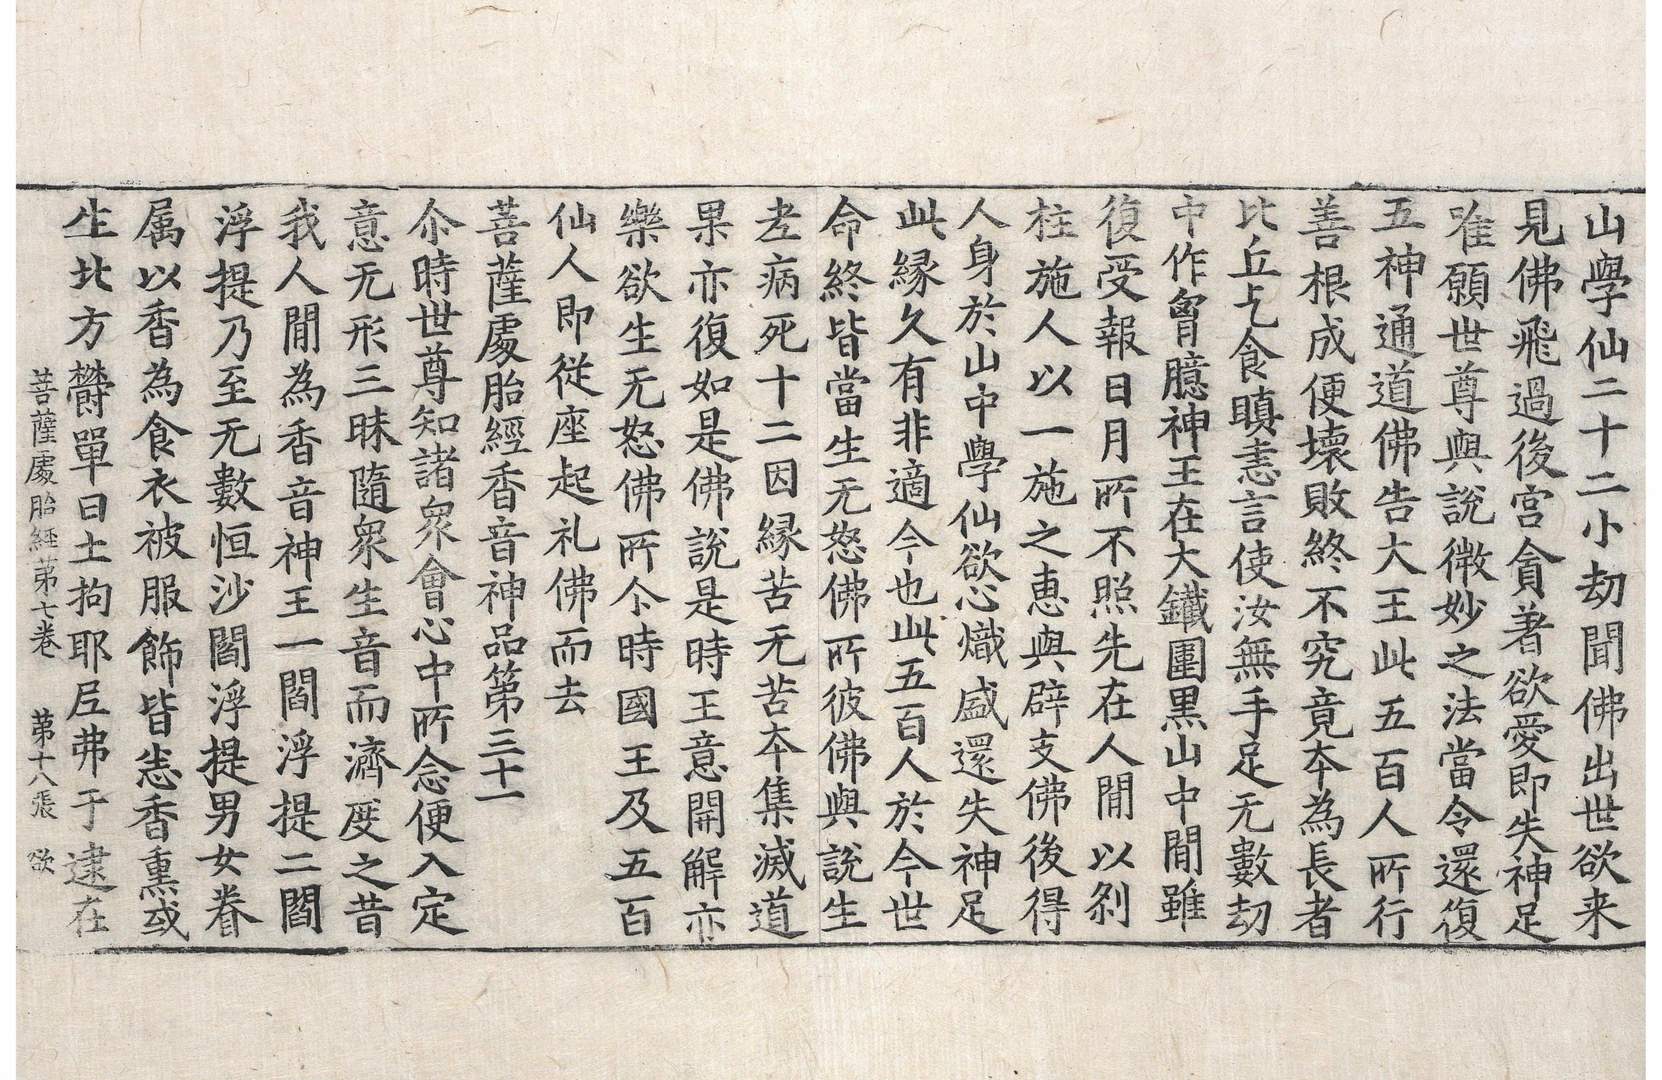 山學仙二十二小劫聞佛出世欲来
見佛飛過後宮貪著欲愛即失神足
唯願世尊與說微妙之法當令還復
五神通道佛告大王此五百人所行
善根成便壞敗終不究竟本為長者
比丘乞食瞋恚言使汝無手足无數劫
中作胷臆神王在大鐵圍黒山中間雖
復受報日月所不照先在人間以剎
柱施人以一施之恵與辟支佛後得
人身於山中學仙欲心熾盛還失神足
此縁久有非適今也此五百人於今世
命終皆當生无怒佛所彼佛與說生
老病死十二因縁苦无苦本集滅道
果亦復如是佛說是時王意開解亦
樂欲生无怒佛所尒時國王及五百
仙人即從座起礼佛而去
菩薩處胎經香音神品第三十一
尒時世尊知諸衆會心中所念便入定
意无形三昧隨衆生音而濟度之昔
我人間為香音神王一閻浮提二閻
浮提乃至无數恒沙閻浮提男女眷
属以香為食衣被服飾皆恚香熏或
生北方欝單曰土拘耶尼弗于逮在
菩薩處胎経第七巻 第十八張 欲